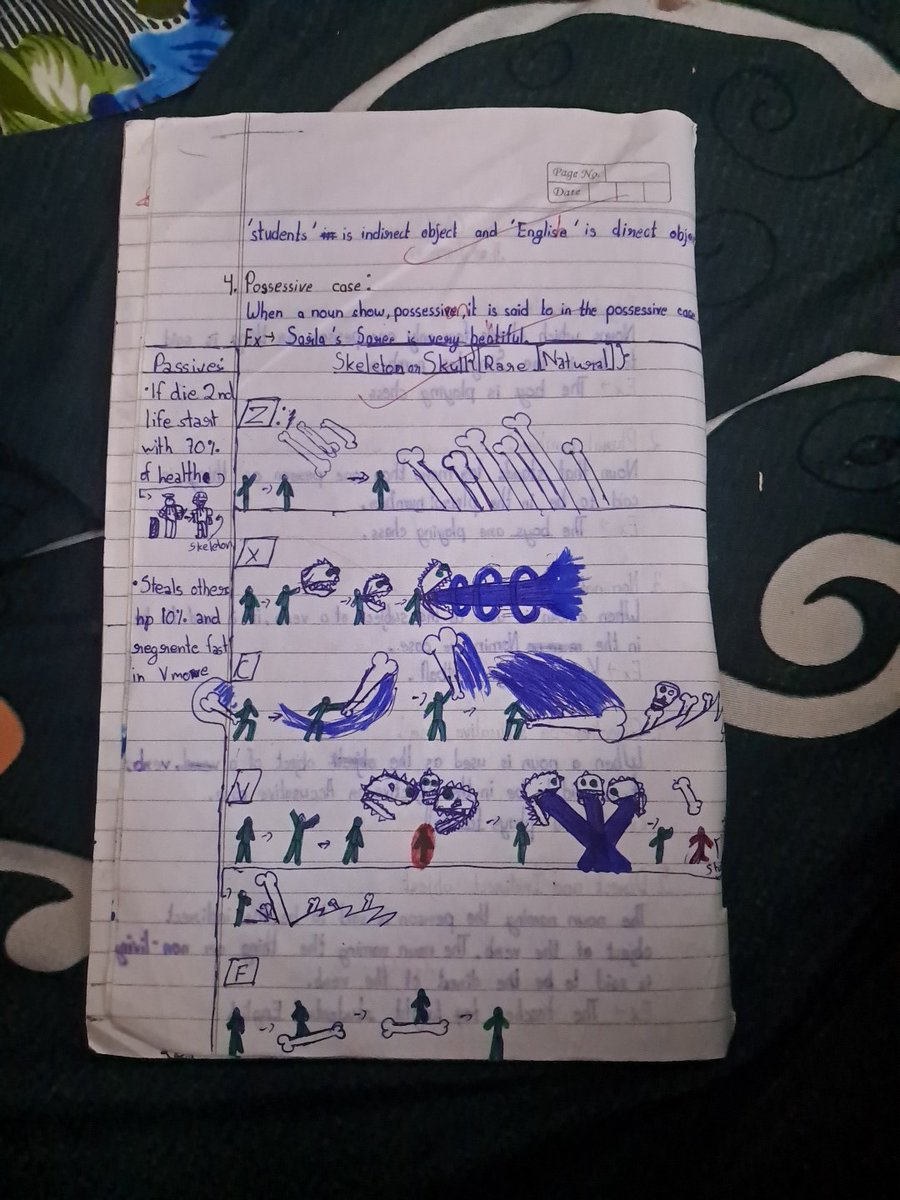 Page No.
Date
'students' is indirect object and 'English' is direct obje
4. Possessive case:
When a noun show, possession, it is said to in the possessive case
Ex→ Sarla's Saree is very beutiful.
Passive:
Skeleton or Skull [Rare [Natural]]
• If die 2nd
life start
with 70%
of healthe
skeleton
• Steals others
hp 10% and
regrente fast
in V move
Z:
X
C
V
F